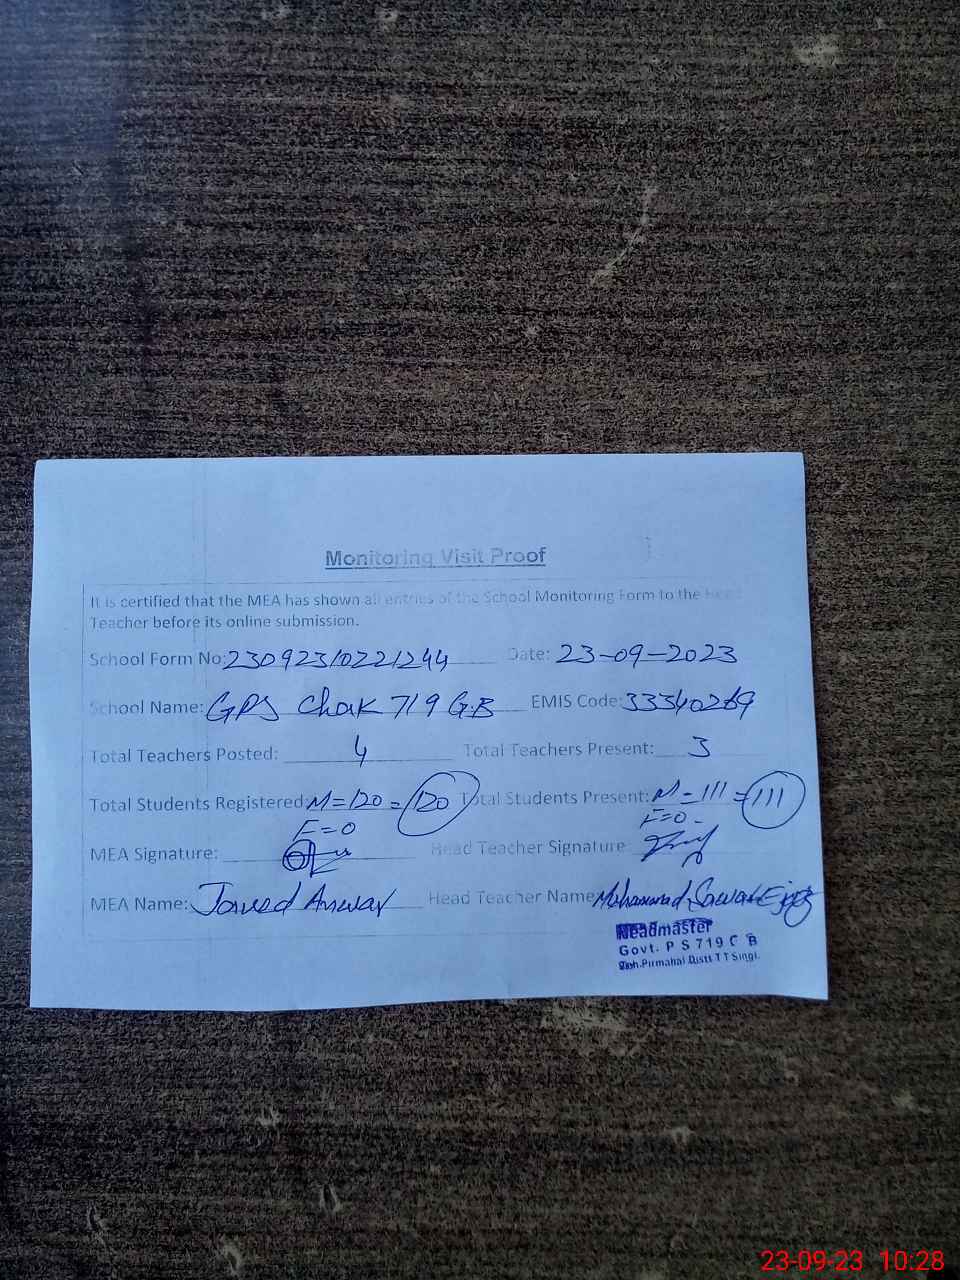 Monitoring Visit Proof
It is certified that the MEA has shown all entries of the School Monitoring Form to the Head
Teacher before its online submission.
School Form No: 23092310221244 Date: 23-09-2023
School Name: GPS Chak 719 G.B EMIS Code: 33340269
Total Teachers Posted: 4 Total Teachers Present: 3
Total Students Registered: M=120 = 120 Total Students Present: M=111 = 111
F=0 F=0
MEA Signature: Head Teacher Signature
MEA Name: Javed Anwar Head Teacher Name Mohammad Sawar
Headmaster
Govt. P S 719 G B
Pirmahal Distt T T Singh.
23-09-23 10:28